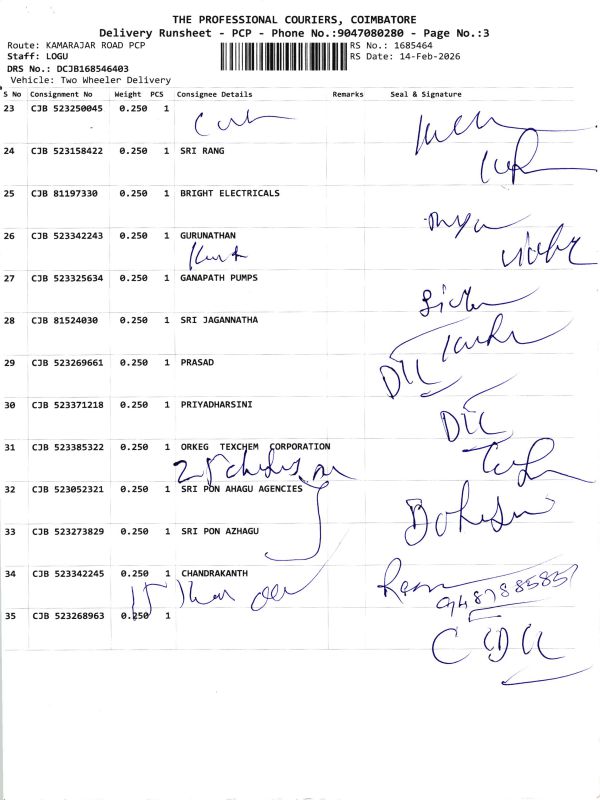 THE PROFESSIONAL COURIERS, COIMBATORE
Delivery Runsheet - PCP - Phone No.:9047080280 - Page No.:3
Route: KAMARAJAR ROAD PCP RS No.: 1685464
Staff: LOGU RS Date: 14-Feb-2026
DRS No.: DCJB168546403
Vehicle: Two Wheeler Delivery
S No Consignment No Weight PCS Consignee Details Remarks Seal & Signature
23 CJB 523250045 0.250 1
24 CJB 523158422 0.250 1 SRI RANG
25 CJB 81197330 0.250 1 BRIGHT ELECTRICALS
26 CJB 523342243 0.250 1 GURUNATHAN
27 CJB 523325634 0.250 1 GANAPATH PUMPS
28 CJB 81524030 0.250 1 SRI JAGANNATHA
29 CJB 523269661 0.250 1 PRASAD
30 CJB 523371218 0.250 1 PRIYADHARSINI
31 CJB 523385322 0.250 1 ORKEG TEXCHEM CORPORATION
32 CJB 523052321 0.250 1 SRI PON AHAGU AGENCIES
33 CJB 523273829 0.250 1 SRI PON AZHAGU
34 CJB 523342245 0.250 1 CHANDRAKANTH
35 CJB 523268963 0.250 1